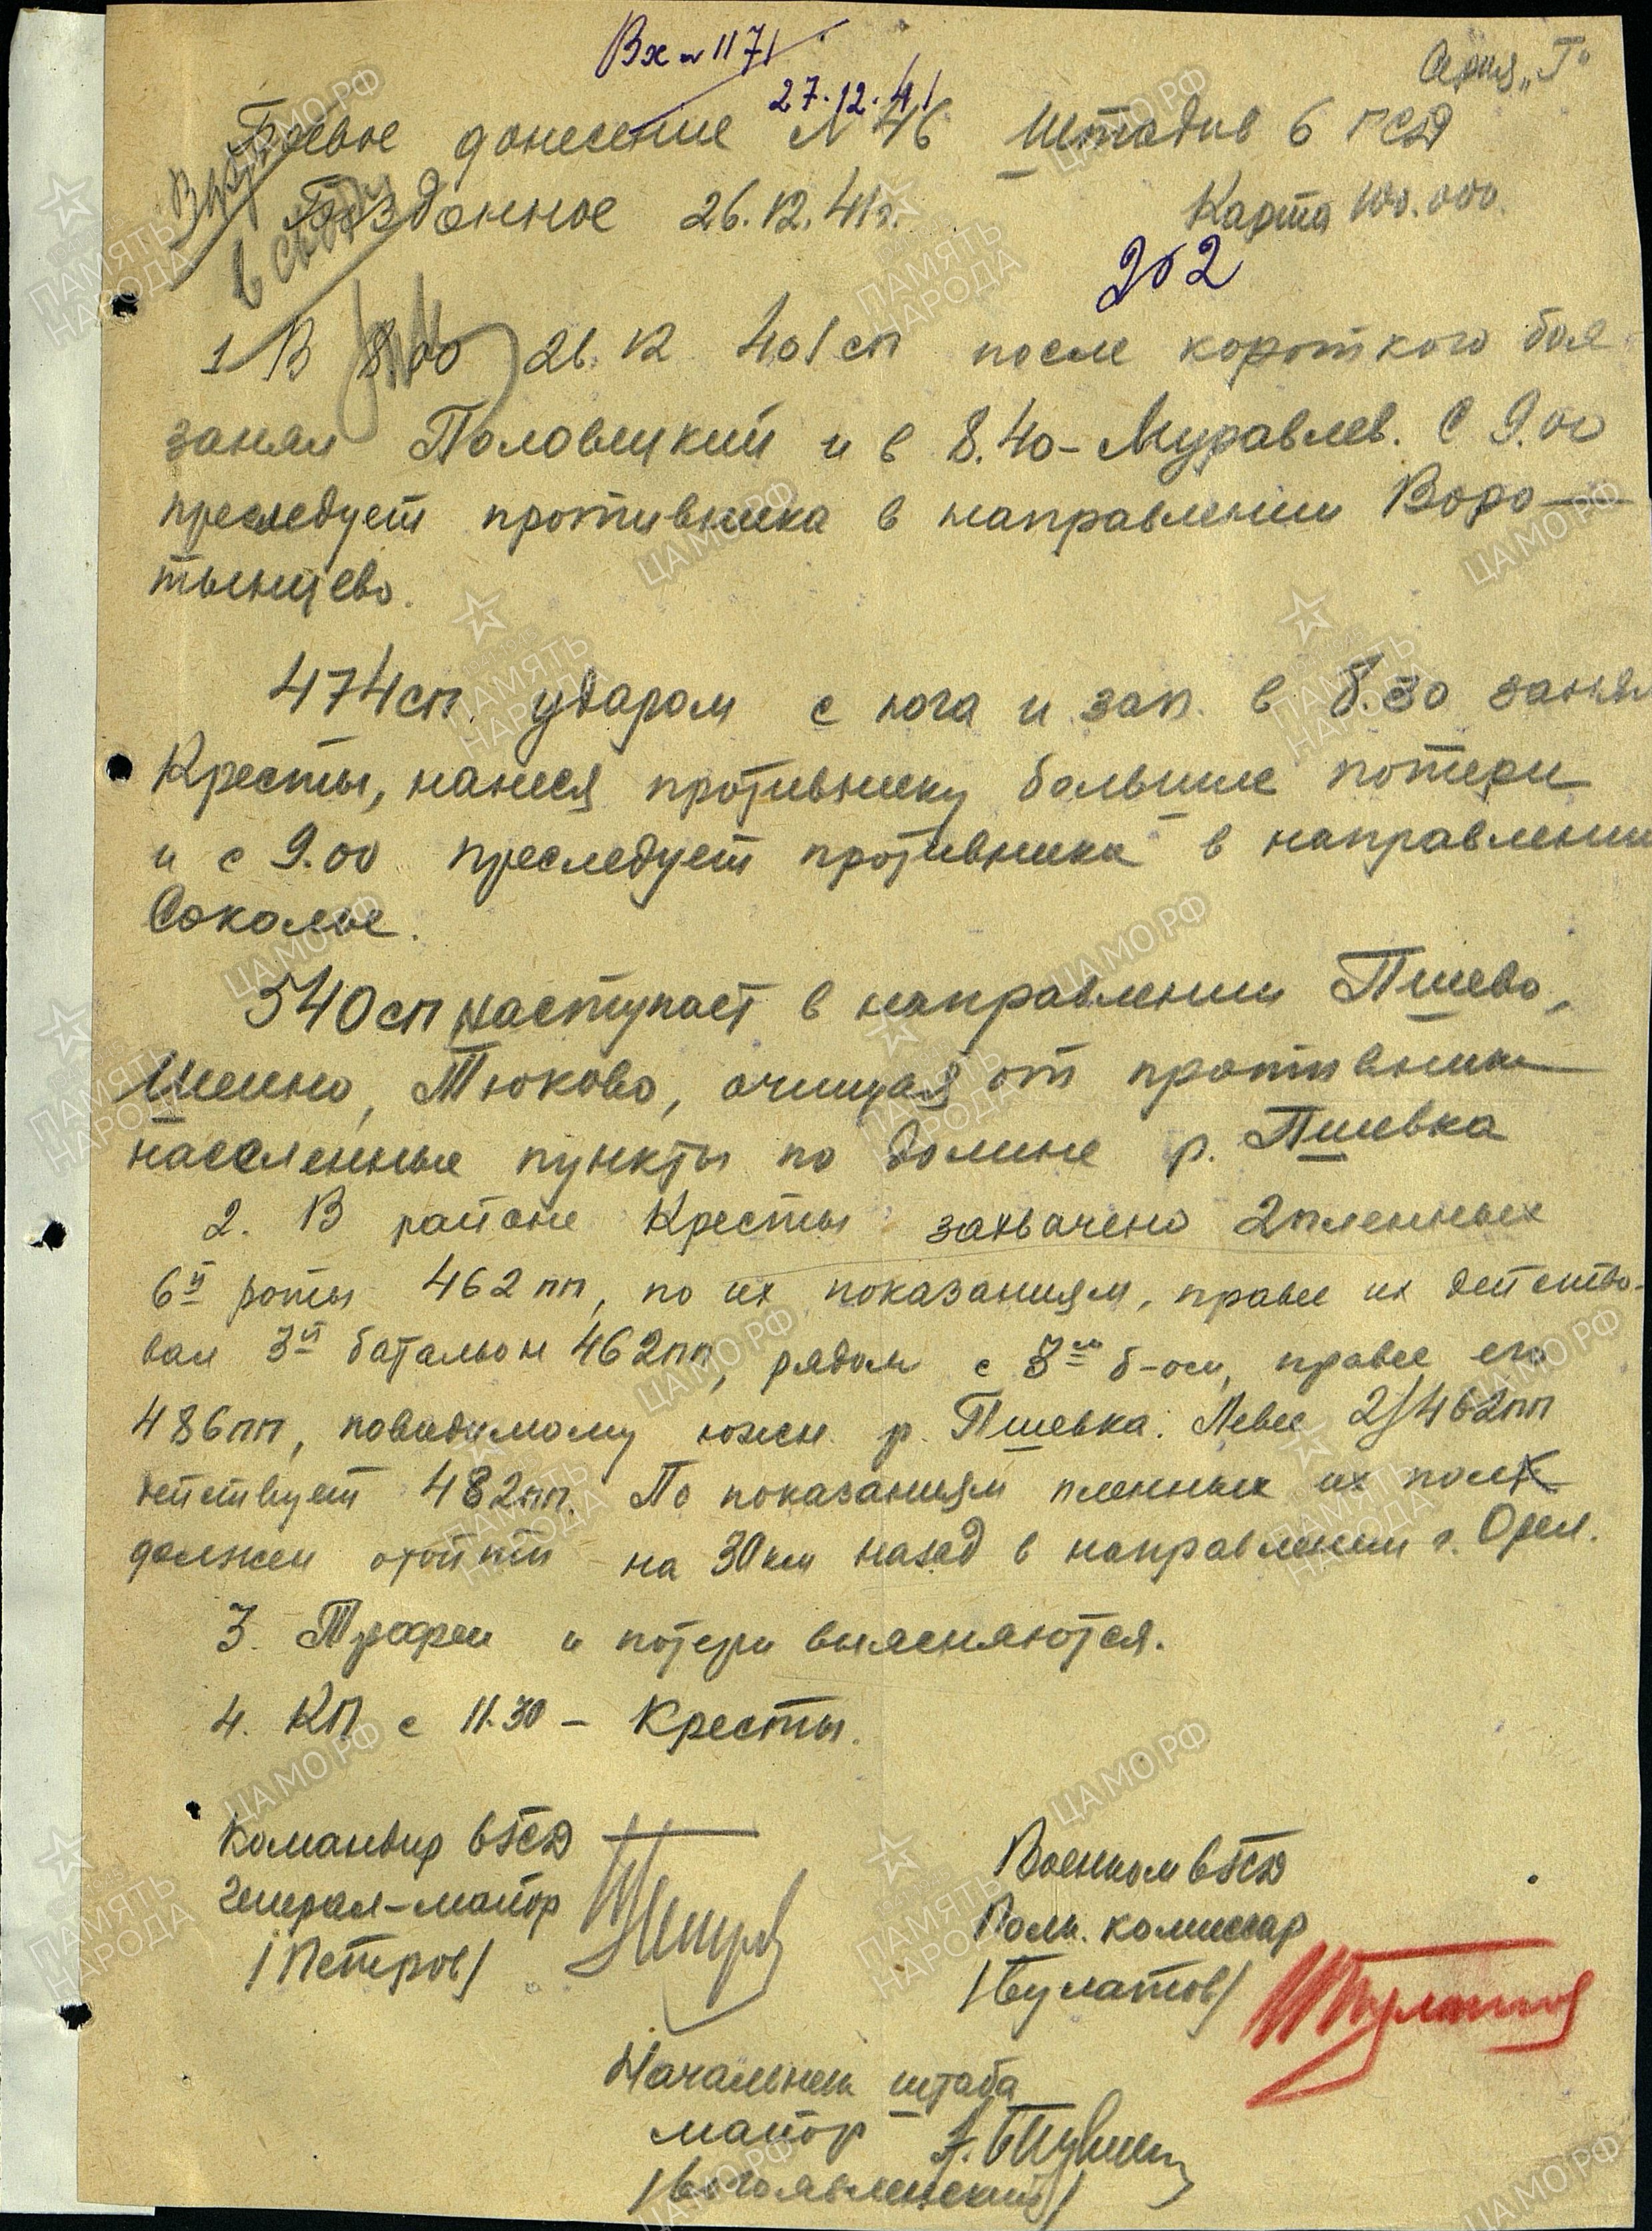 Вх № 1171
27.12.41
Серия „Г"
Боевое донесение № 46 Штадив 6 ГСД
Бездонное 26.12.41г. Карта 100.000.
в сводку
202
1 В 8.00 26.12 401 сп после короткого боя
занял Половецкий и в 8.40 – Муравлев. С 9.00
преследует противника в направлении Воро-
тынцево.
474 сп. ударом с юга и зап. в 8.30 занял
Кресты, нанеся противнику большие потери
и с 9.00 преследует противника в направлении
Соколье.
540 сп наступает в направлении Пшево,
Шеино, Тюково, очищая от противника
населенные пункты по долине р. Пшевка
2. В районе Кресты захвачено 2 пленных
6й роты 462 пп, по их показаниям, правее их действо-
вал 3й батальон 462пп, рядом с 3м б-ом, правее его
486пп, повидимому южн. р. Пшевка. Левее 2/462пп
действует 482пп. По показаниям пленных их полк
должен отойти на 30км назад в направлении г. Орел.
3. Трофеи и потери выясняются.
4. КП с 11.30 – Кресты.
Командир 6 ГСД
генерал-майор
/Петров/
Петров
Военком 6 ГСД
Полк. комиссар
/Булатов/
Булатов
Начальник штаба
майор
/Богоявленский/
ПАМЯТЬ НАРОДА
ЦАМО РФ